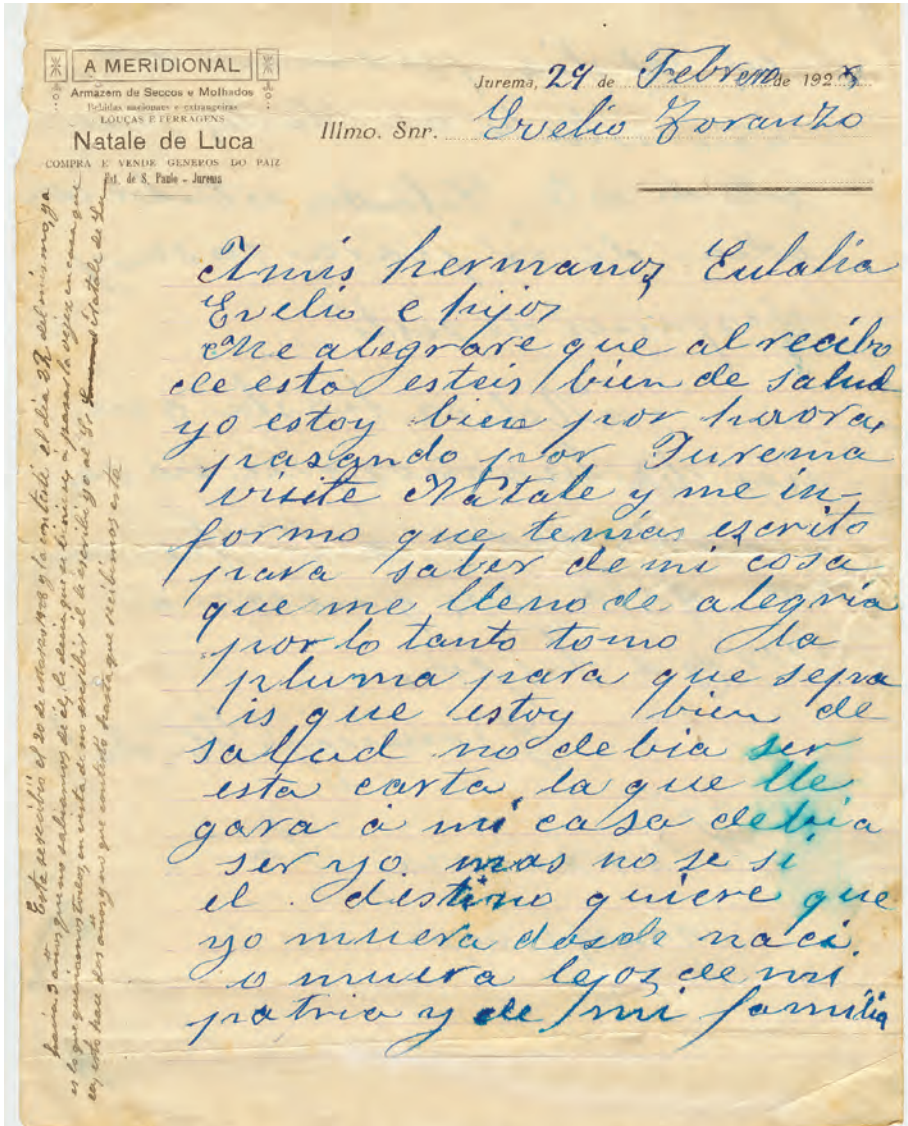 A MERIDIONAL
Armazem de Seccos e Molhados
Bebidas nacionaes e extrangeiras
LOUÇAS E FERRAGENS
Natale de Luca
COMPRA E VENDE GENEROS DO PAIZ
Est. de S. Paulo - Jurema
Jurema, 29 de Febrero de 192
Illmo. Snr. Evelio Toranzo
A mis hermanos Eulalia
Evelio e hijos
Me alegrare que al recibo
de esta esteis bien de salud
yo estoy bien por haora,
pasando por Jurema
visite Natale y me in-
formo que temias escrito
para saber de mi cosa
que me lleno de alegria
por lo tanto tomo la
pluma para que sepa
is que estoy bien de
salud no debia ser
esta carta la que lle
gara á mi casa debia
ser yo. mas no se si
el destino quiere que
yo muera desde naci
o muera lejos de mi
patria y de mi familia
Esta se recibió el 20 de 1928 y la contesté el dia 22 del mismo, ya
hacia 3 años que no sabiamos de él, le decia que se viniera a pasar la vejez en casa que
es lo que queriamos todos, en vista de no escribir él le escribi yo al Sr. Natale de Lu
ca, esto hace dos años y no contestó hasta que recibimos esta